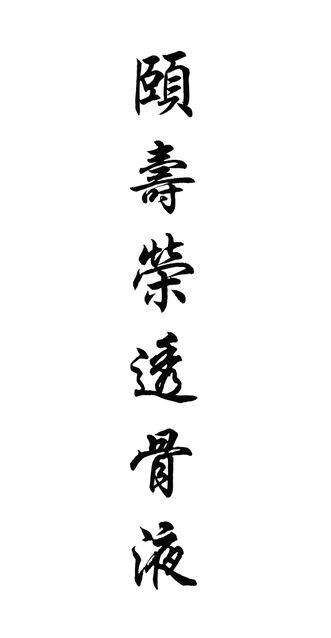 頤壽榮透骨液